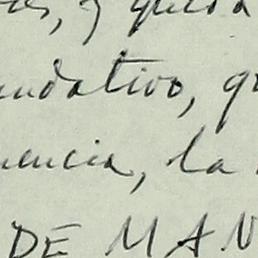 , y queda
undativo, q
uencia, la
DE MAN